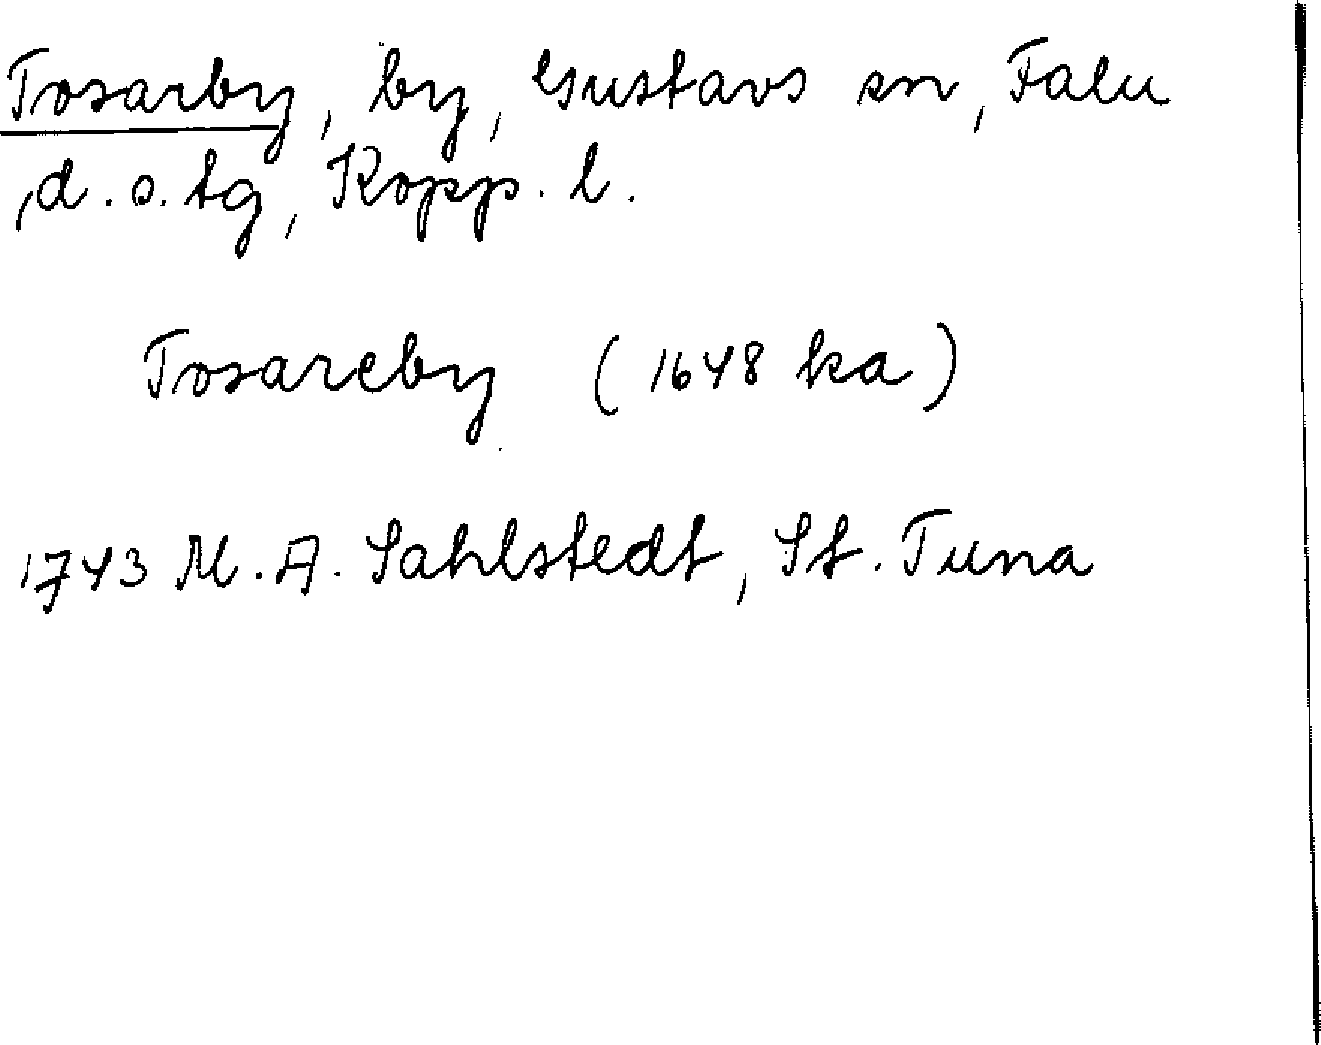 Tosarby, by, Gustavs sn, Falu
d.s. tg, Kopp. l.
Tosareby (1648 ka)
1743 M.A. Sahlstedt, St. Tuna